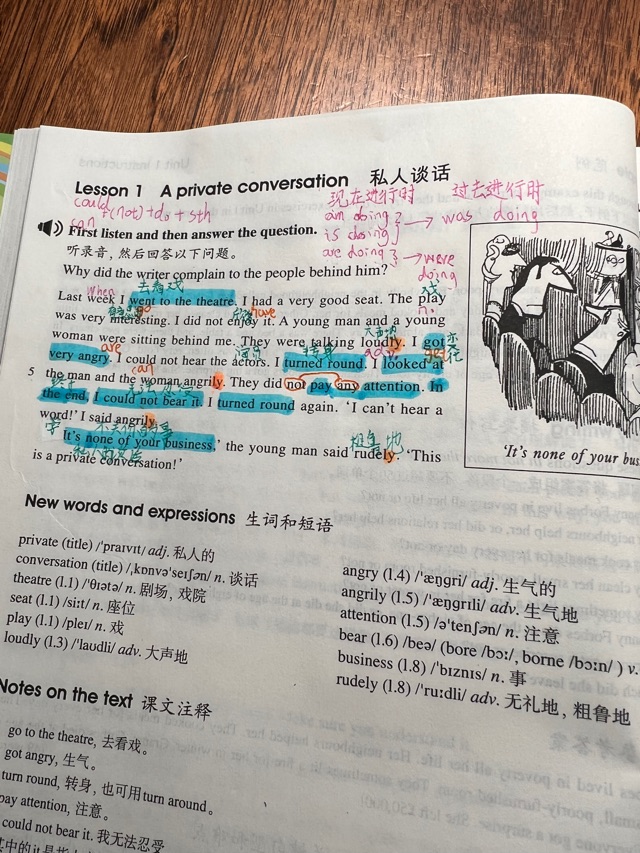 Lesson 1 A private conversation 私人谈话
现在进行时 过去进行时
could
can (not)+do + sth
am doing → was doing
is doing
are doing → were doing
First listen and then answer the question.
听录音，然后回答以下问题。
Why did the writer complain to the people behind him?
去看戏
when
戏
Last week I went to the theatre. I had a very good seat. The play
go
have
n.
was very interesting. I did not enjoy it. A young man and a young
大声地
woman were sitting behind me. They were talking loudly. I got
are
转身
get
very angry. I could not hear the actors. I turned round. I looked at
can
5 the man and the woman angrily. They did not pay any attention. In
the end, I could not bear it. I turned round again. ‘I can’t hear a
word!’ I said angrily.
‘It’s none of your business,’ the young man said rudely. ‘This
粗鲁地
is a private conversation!’
‘It’s none of your bus
New words and expressions 生词和短语
private (title) /ˈpraɪvɪt/ adj. 私人的
conversation (title) /ˌkɒnvəˈseɪʃən/ n. 谈话
theatre (l.1) /ˈθɪətə/ n. 剧场, 戏院
seat (l.1) /siːt/ n. 座位
play (l.1) /pleɪ/ n. 戏
loudly (l.3) /ˈlaʊdli/ adv. 大声地
angry (l.4) /ˈæŋgri/ adj. 生气的
angrily (l.5) /ˈæŋgrɪli/ adv. 生气地
attention (l.5) /əˈtenʃən/ n. 注意
bear (l.6) /beə/ (bore /bɔː/, borne /bɔːn/ ) v.
business (l.8) /ˈbɪznɪs/ n. 事
rudely (l.8) /ˈruːdli/ adv. 无礼地, 粗鲁地
Notes on the text 课文注释
go to the theatre, 去看戏。
got angry, 生气。
turn round, 转身, 也可用turn around。
pay attention, 注意。
could not bear it. 我无法忍受
其中的it是指